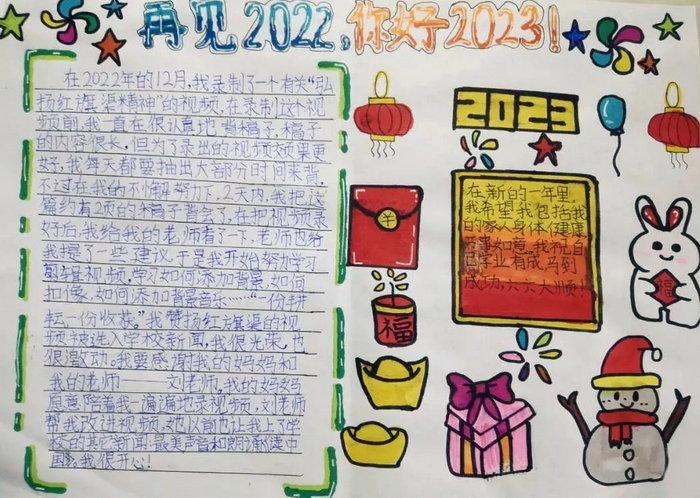 再见2022,你好2023!
在2022年的12月,我录制了一个有关“弘
扬红旗渠精神”的视频,在录制这个视
频前,我一直在很认真地背稿子,稿子
的内容很长,但为了录出的视频效果更
好,我每天都要抽出大部分时间来背,
不过在我的不懈努力下,2天内,我把这
篇约有2页的稿子背会了,在把视频录
好后,我给我的老师看了一下,老师也给
我提了一些建议,于是我开始努力学习
剪辑视频,学习如何添加背景,如何
扣像,如何添加背景音乐……“一份耕
耘一份收获。”我赞扬红旗渠的视
频被选入学校新闻,我很光荣,也
很激动。我要感谢我的妈妈和
我的老师——刘老师。我的妈妈
愿意陪着我一遍遍地录视频,刘老师
帮我改进视频,她以前也让我上了学
校的其它新闻:最美声音和朗诵《读中
国》,我很开心!
2023
在新的一年里,
我希望我包括我
的家人身体健康
万事如意。我祝自
己学业有成马到
成功,六六大顺!
¥
福
福